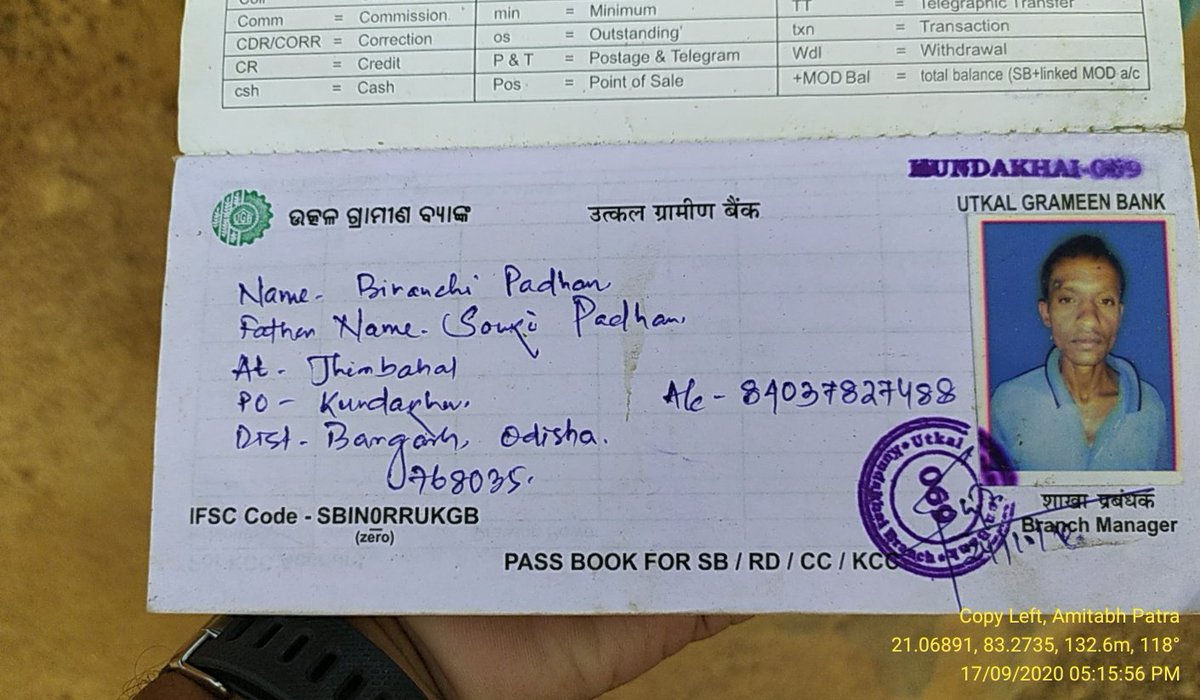 Comm = Commission min = Minimum TT = Telegraphic Transfer
CDR/CORR = Correction os = Outstanding' txn = Transaction
CR = Credit P & T = Postage & Telegram Wdl = Withdrawal
csh = Cash Pos = Point of Sale +MOD Bal = total balance (SB+linked MOD a/c
KUNDAKHAI-069
ଉତ୍କଳ ଗ୍ରାମୀଣ ବ୍ୟାଙ୍କ उत्कल ग्रामीण बैंक UTKAL GRAMEEN BANK
Name- Biranchi Padhan
Father Name- Padhan
At- Jhimbahal
PO-
Dist- Bargarh, Odisha.
768035.
A/c - 84037827488
Utkal
069
Branch
IFSC Code - SBIN0RRUKGB
(zero)
शाखा प्रबंधक
Branch Manager
PASS BOOK FOR SB / RD / CC / KCC
Copy Left, Amitabh Patra
21.06891, 83.2735, 132.6m, 118°
17/09/2020 05:15:56 PM